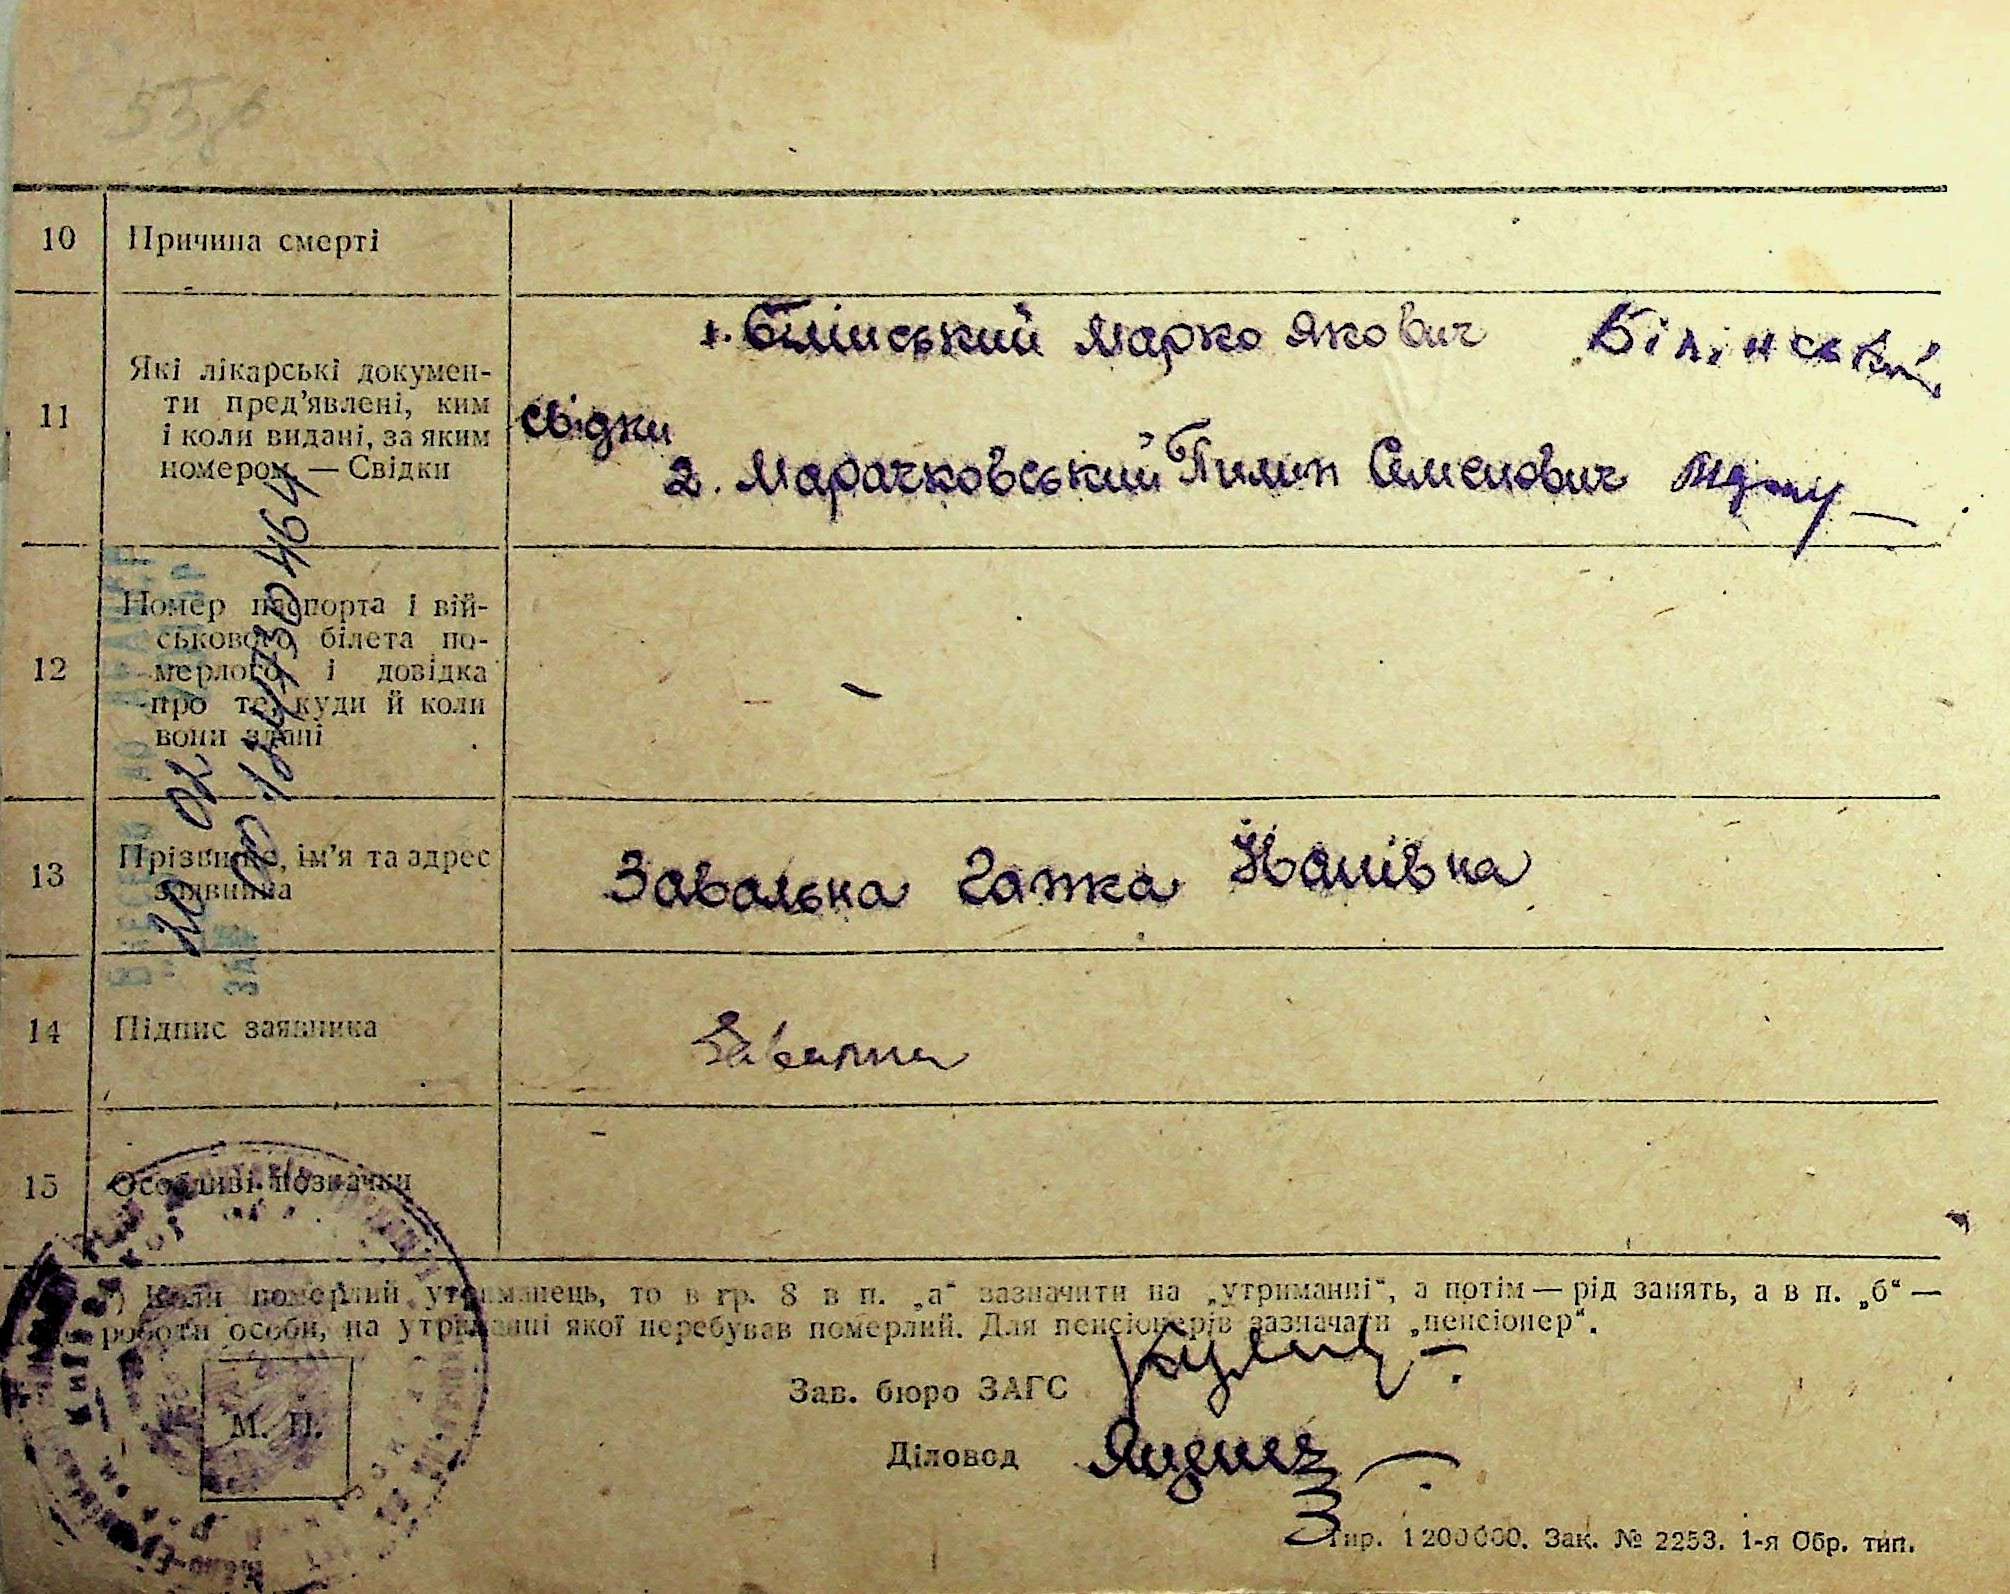 10 Причина смерті
1. Білінський Марко Якович Білінський
11 Які лікарські докумен-
ти пред’явлені, ким
і коли видані, за яким
номером. — Свідки
свідки
2. Марачковський Пилип Семенович
12 Номер паспорта і вій-
ськового білета по-
мерлого і довідка
про те, куди й коли
вони здані
–
13 Прізвище, ім’я та адрес
заявника
Завальна Гапка Йванівна
14 Підпис заявника
Завална
15 Особливі позначки
*) Коли померлий утриманець, то в гр. 8 в п. „а“ зазначити на „утриманні“, а потім — рід занять, а в п. „б“ —
роботи особи, на утриманні якої перебував померлий. Для пенсіонерів зазначати „пенсіонер“.
Зав. бюро ЗАГС
М. П.
Діловод
Тир. 1200000. Зак. № 2253. 1-я Обр. тип.